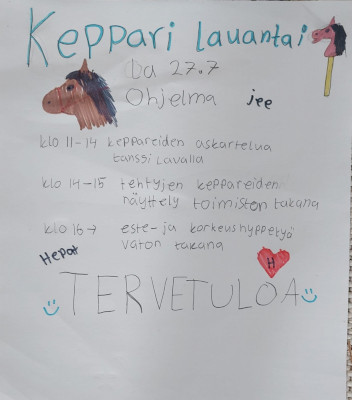 Keppari lauantai
La 27.7
Ohjelma jee
klo 11-14 keppareiden askartelua
tanssi lavalla
klo 14-15 tehtyjen keppareiden
näyttely toimiston takana
klo 16→ este- ja korkeushyppetyä
vaton takana
Hepat
H
TERVETULOA